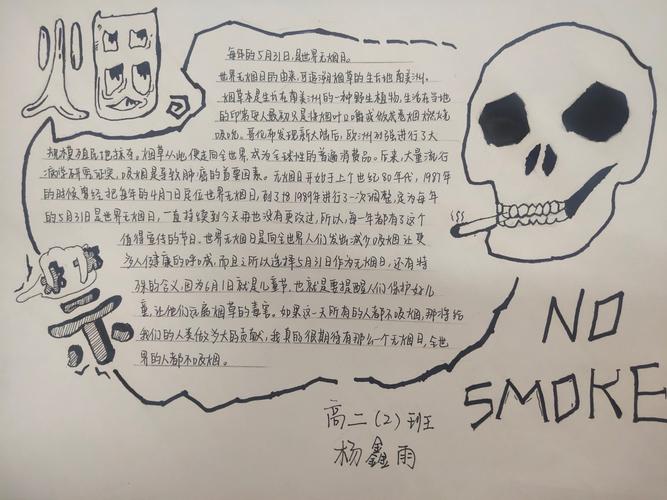 烟
禁
每年的5月31日,是世界无烟日。
世界无烟日的由来,可追溯烟草的生长地南美洲。
烟草本是生长在南美洲的一种野生植物,生活在当地
的印第安人最初只是将烟叶口嚼或做成卷烟燃烧
吸吮。哥伦布发现新大陆后,欧洲列强进行了大
规模殖民地掠夺。烟草从此便走向全世界,成为全球性的普遍消费品。后来,大量流行
病性研究证实,吸烟是导致肺癌的首要因素。无烟日开始于上个世纪80年代,1987年
的时候曾经把每年的4月7日定位世界无烟日,到了1989年进行了一次调整,定为每年
的5月31日是世界无烟日,一直持续到今天也没有更改过,所以,每一年都有了这个
值得宣传的节日。世界无烟日是向全世界人们发出减少吸烟让更
多人健康的呼喊,而且之所以选择5月31日作为无烟日,还有特
殊的含义,因为6月1日就是儿童节,也就是要提醒人们保护好儿
童,让他们远离烟草的毒害。如果这一天所有的人都不吸烟,那将给
我们的人类做多大的贡献,我真的很期待有那么一个无烟日,全世
界的人都不吸烟。
NO
SMOKE
高二(2)班
杨鑫雨